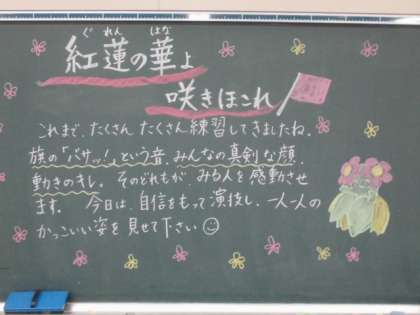 ぐれん はな
紅蓮の華よ
咲きほこれ
これまで、たくさん たくさん練習してきましたね。
旗の「バサッ!」という音、みんなの真剣な顔、
動きのキレ。そのどれもが、みる人を感動させ
ます。 今日は、自信をもって演技し、一人一人の
かっこいい姿を見せて下さい